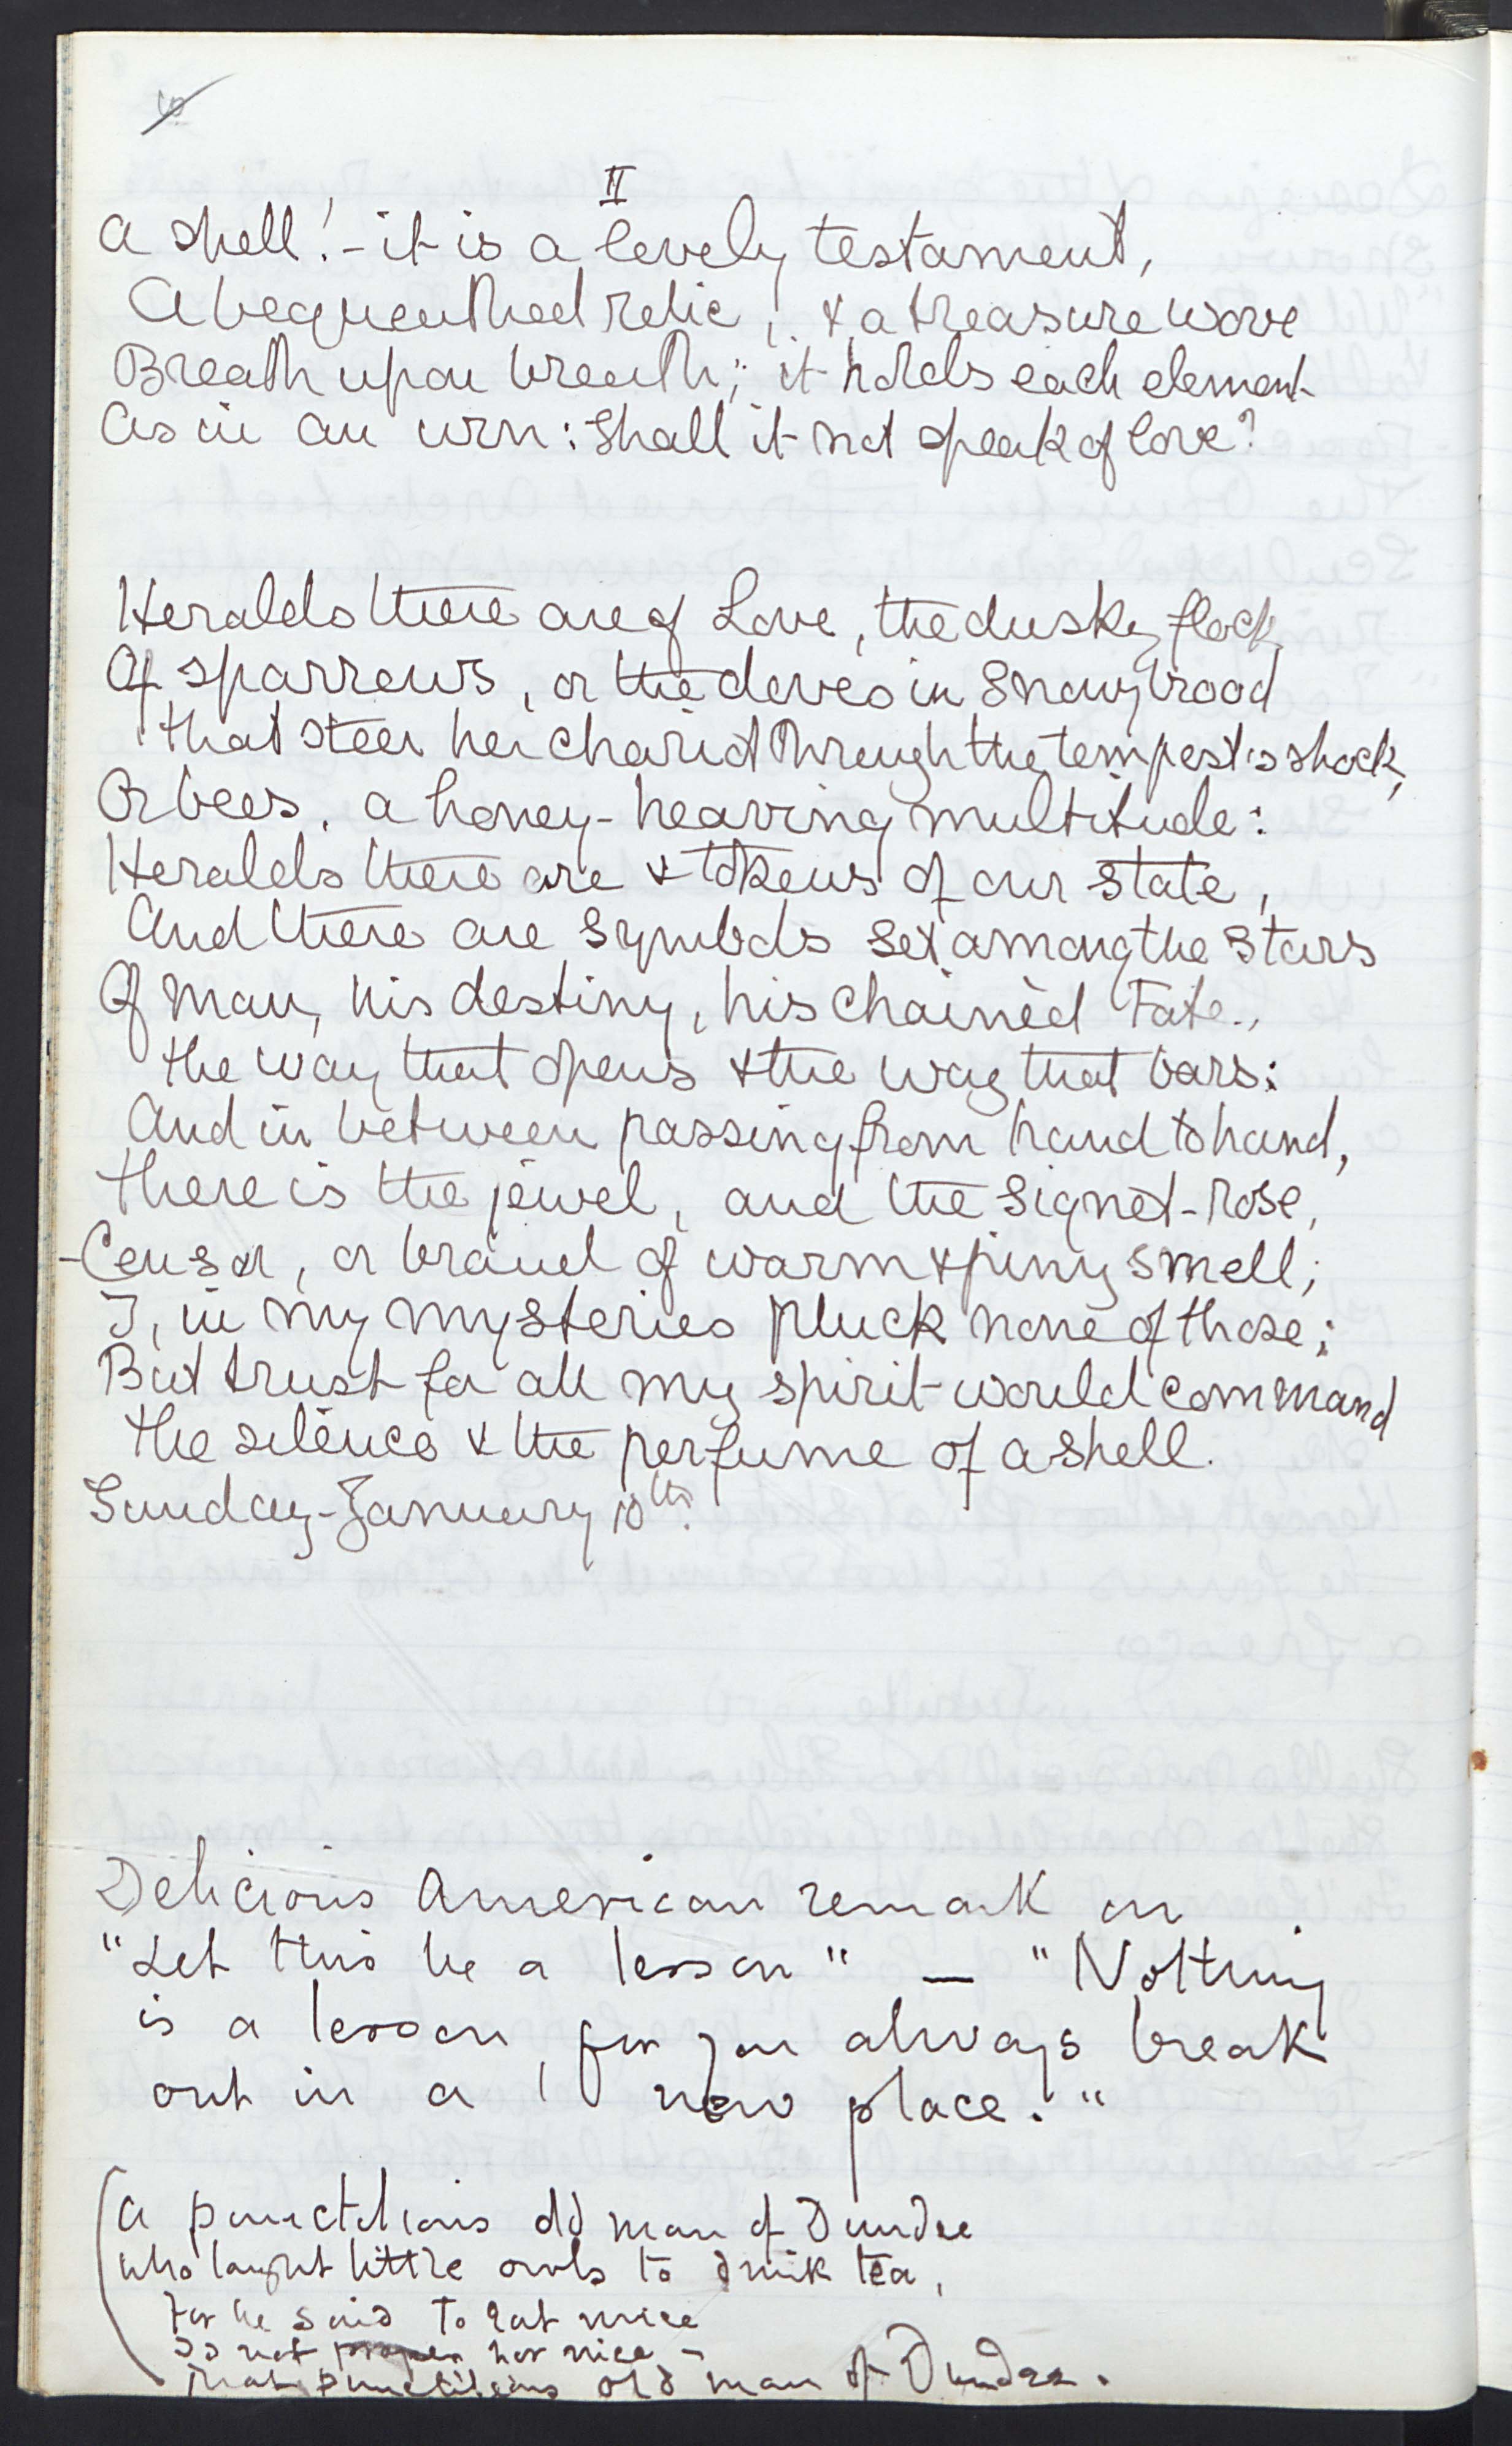 6
II
A shell! - it is a lovely testament,
A bequeathed relic, & a treasure wove
Breath upon breath; it holds each element
As in an urn: Shall it not speak of love?
Heralds there are of Love, the dusky flock
Of sparrows, or the doves in snowy brood
That steer her chariot through the tempest's shock,
Or bees, a honey-heaving multitude:
Heralds there are & tokens of our state,
And there are symbols set among the stars
Of man, his destiny, his chainèd Fate,
The way that opens & the way that bars:
And in between passing from hand to hand,
There is the jewel, and the signet-rose,
- Censer, or brand of warm & piny smell;
I, in my mysteries pluck none of those;
But trust for all my spirit would command
The silence & the perfume of a shell.
Sunday - January 10th.
Delicious American remark on
"Let this be a lesson" — "Nothing
is a lesson, for you always break
out in a new place."
(A punctilious old man of Dundee
who taught little owls to drink tea,
For he said To eat mice
Is not proper nor nice -
That punctilious old man of Dundee.